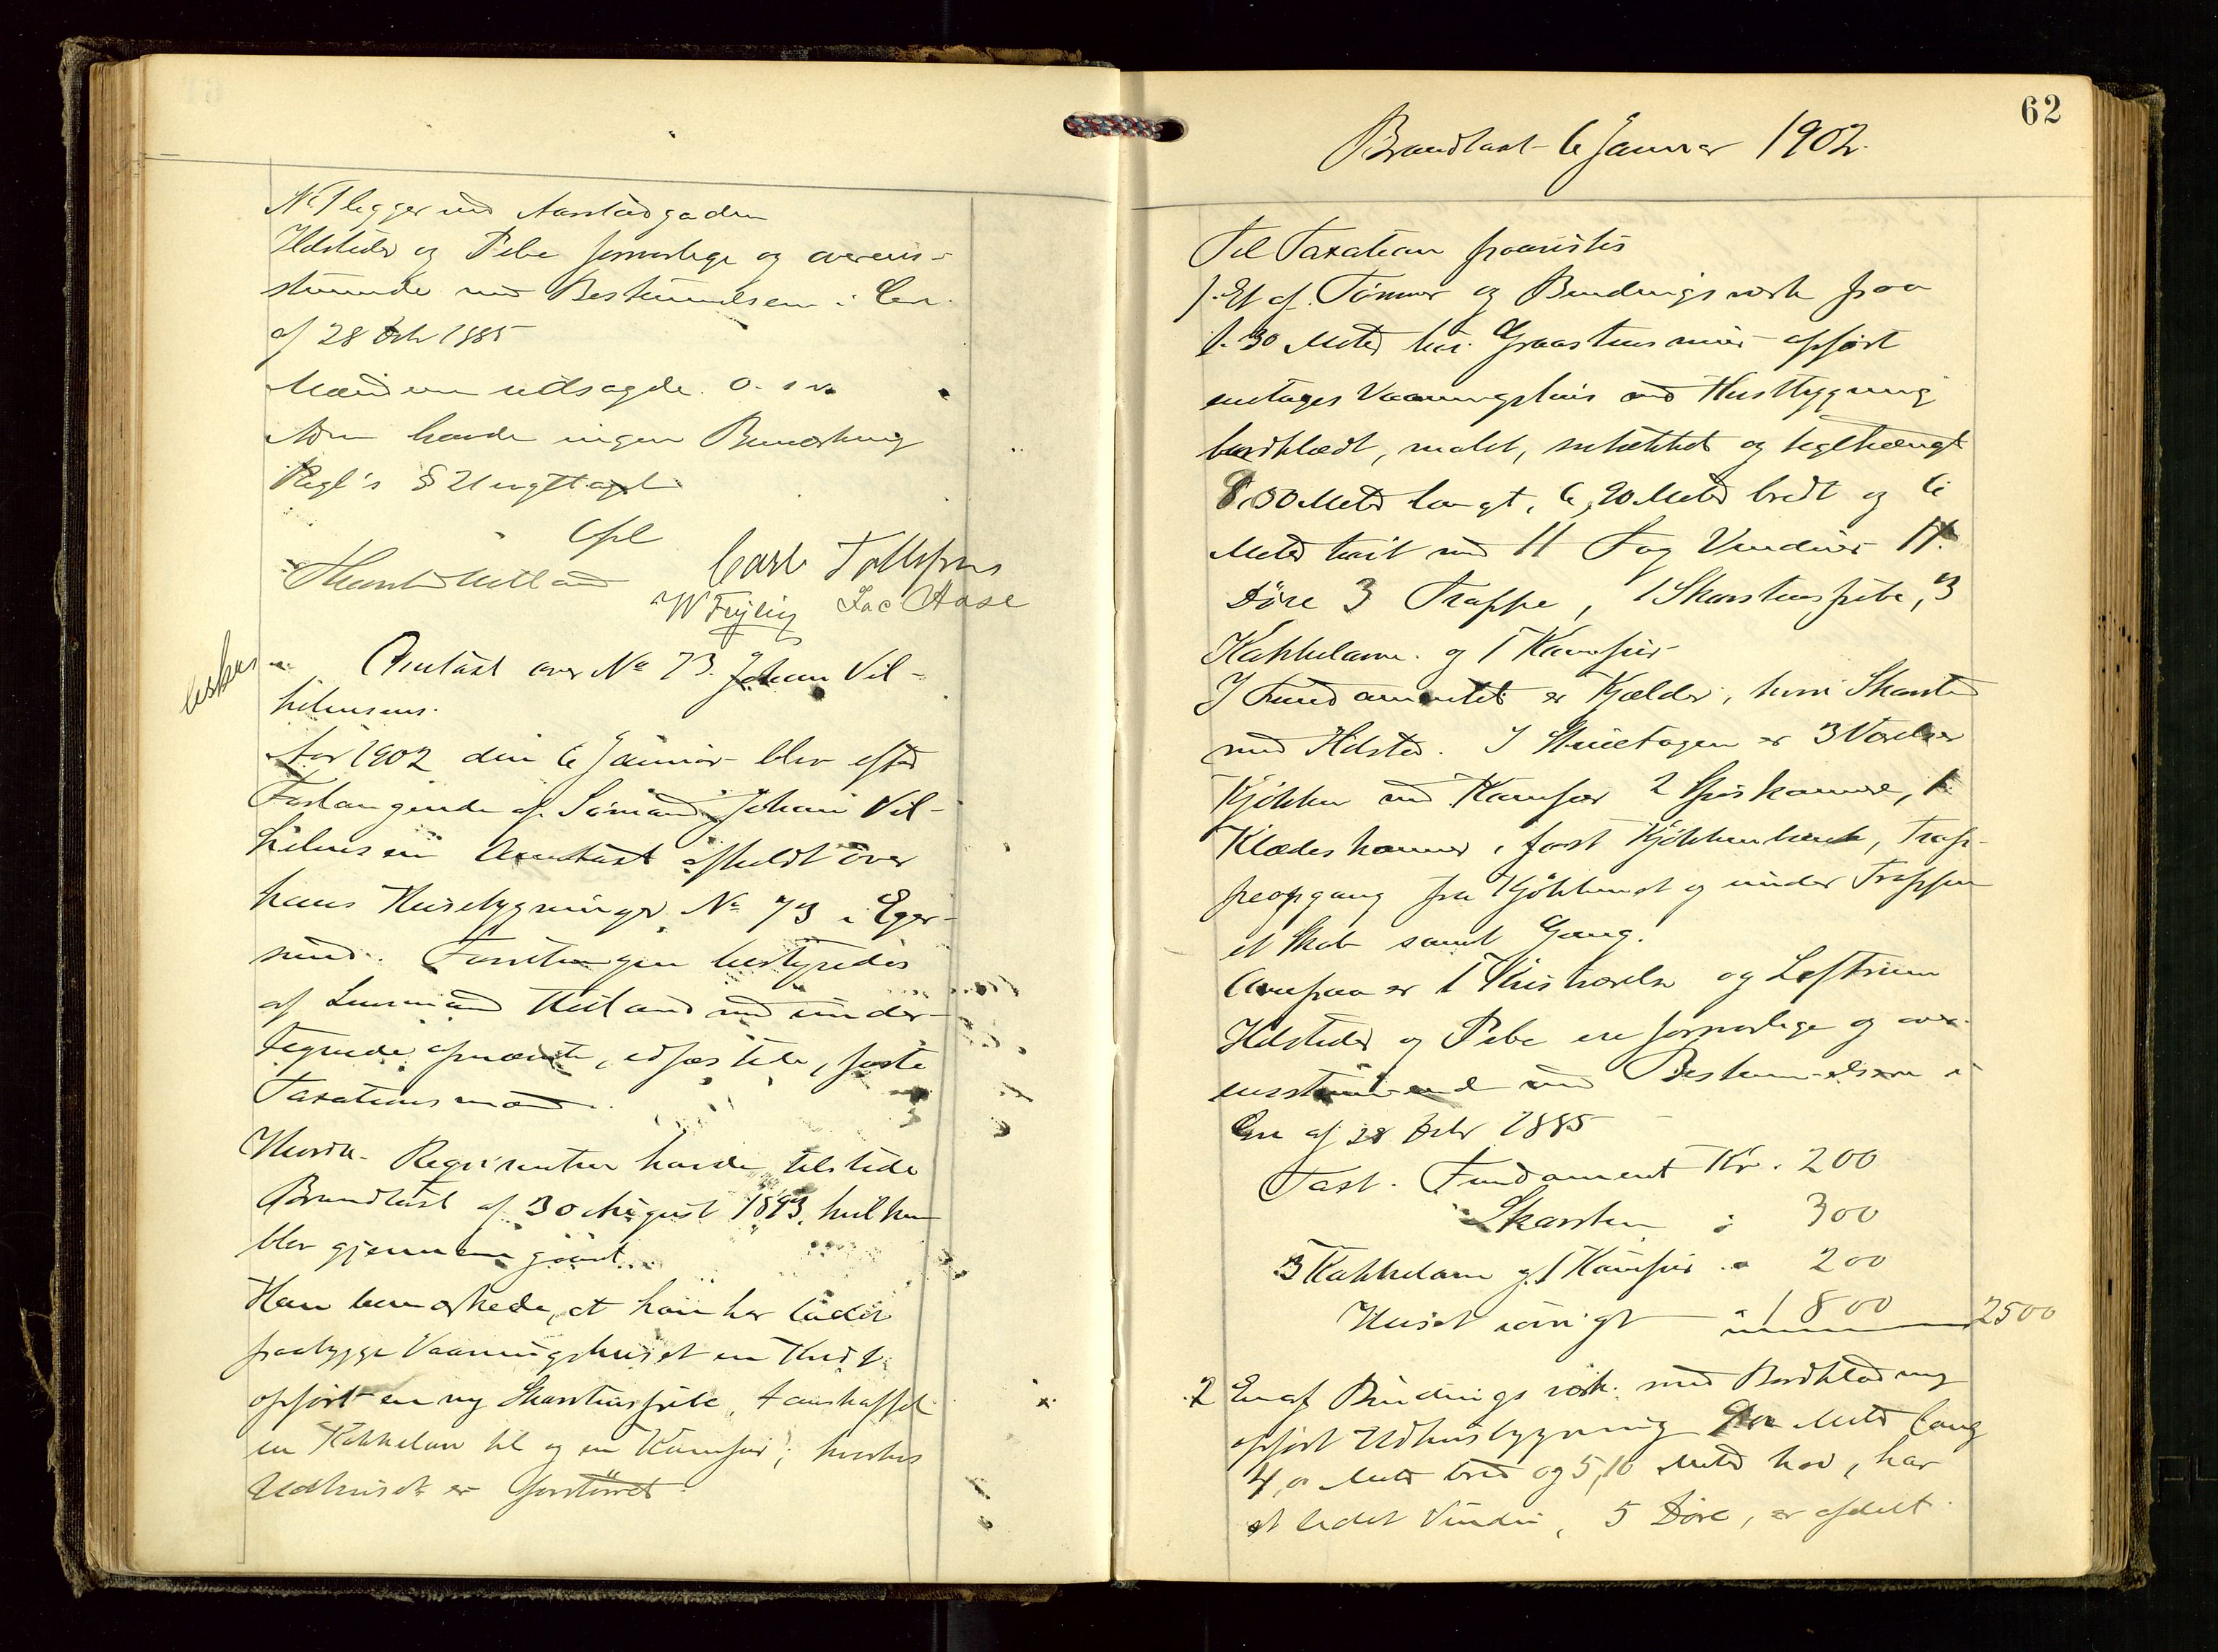 No 1 ligger ved Aarstadgaden
Ildsteder og Pibe forsvarlige og overens-
stemmende med Bestemmelsen i Lov
af 28 Octr 1885
Mændene udsagde o. s v.
Som havde ingen Bemærkning
Regl's § 21 iagttaget
Opl
Carl Tollefsen
W Feyling Jac Aase
Omtaxt over No 73. Johan Vil-
helmsens.
Aar 1902 den 6 Januar blev efter
Forlangende af Sømand Johan Vil-
helmsen Omtaxt afholdt over
hans Husebygninger No 73 i Eger-
sund. Forretningen bestyredes
af Lensmand Hetland med under-
tegnede opnævnte, edfæstede, faste
Taxationsmænd.
Hovin. Reqvirenten havde tilstede
Brandtaxt af 30 August 1893, hvilken
blev gjennemgaaet.
Han bemærkede, at han har ladet
paabygge Vaaningshuset en Kvist
opført en ny Skorstenspibe, anskaffet
en Kakkelovn til og en Komfur; hvorhos
Udhuset er forstørret.
62
Brandtaxt 6 Januar 1902.
Til Taxation paavistes
1. Et af Tømmer og Bindingsværk paa
1.30 Meter høi Graastensmur opført
enetages Vaaningshus med Kvistbygning
bordklædt, malet, sutækket og teglhængt
8.50 Meter langt, 6,90 Meter bredt og 6
Meter høit med 11 Fag Vinduer 11
Døre 3 Trappe, 1 Skorstenspibe, 3
Kakkelovne og 1 Komfur
I Fundamentet er Kjælder, hvori Skorsten
med Ildsted. I Stueetagen er 3 Værelser
Kjøkken med Komfur 2 Spiskammere, 1
Klædeskammer, fast Kjøkkenbænk, Trap-
peopgang fra Kjøkkenet og under Trappen
et Skab samt Gang.
Ovenpaa er 1 Kvistværelse og Loftrum
Ildsteder og Pibe ere forsvarlige og over-
ensstemmende med Bestemmelsen i
Lov af 28 Octr 1885
Taxt. Fundament Kr. 200
Skorsten " 300
3 Kakkelovne og 1 Komfur " 200
Huset iøvrigt " 1800 2500
2 En af Bindingsværk med Bordklædning
opført Udhusbygning Meter lang
4,0 Meter bred og 5,10 Meter høi, har
et lidet Vindu, 5 Døre, er afdelt